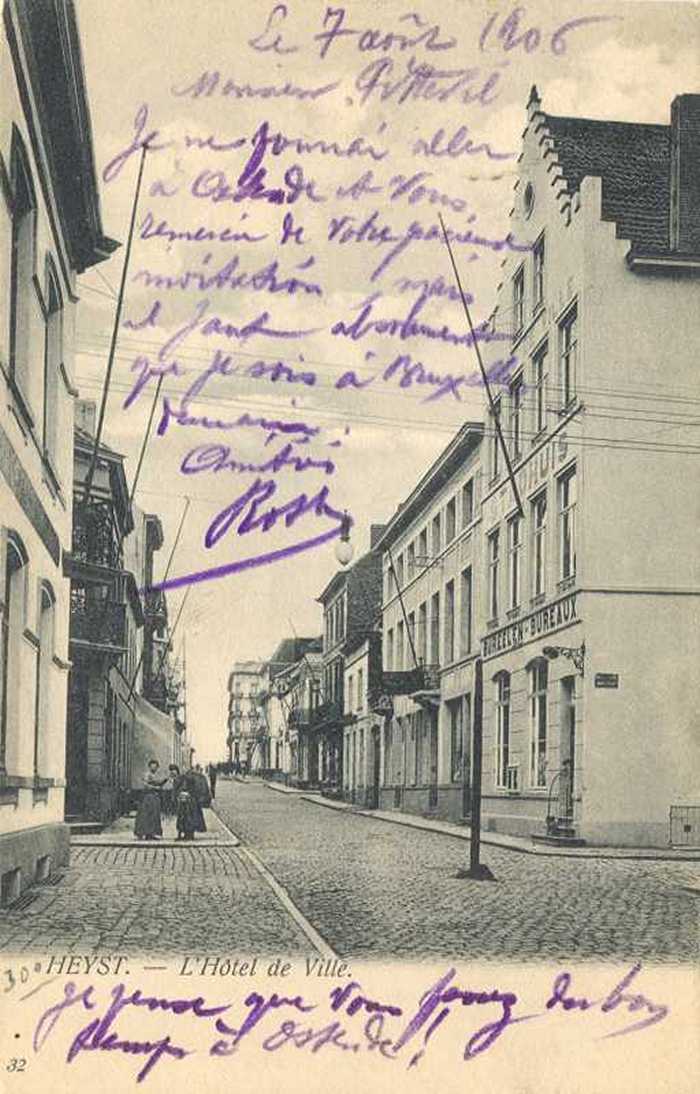 Le 7 août 1906
Monsieur
Je ne pourrai aller
à Ostende et Vous
remercie de votre gracieuse
invitation mais
il faut absolument
que je sois à Bruxelles
demain.
Amitiés
HUIS
BUREELEN-BUREAUX
30
HEYST. — L'Hôtel de Ville.
Je pense que Vous passez du bon
temps à Ostende!
32